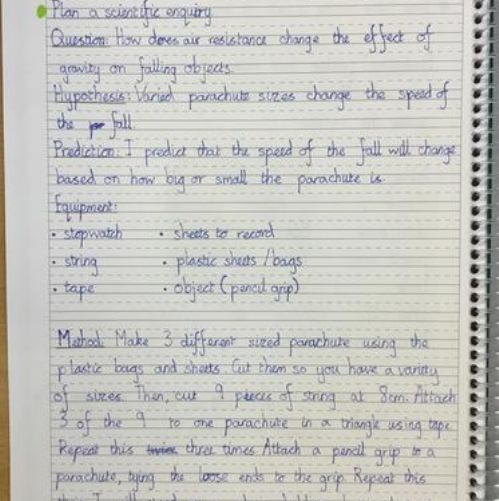 Plan a scientific enquiry
Question: How does air resistance change the effect of
gravity on falling objects.
Hypothesis: Varied parachute sizes change the speed of
the fall.
Prediction: I predict that the speed of the fall will change
based on how big or small the parachute is.
Equipment:
• stopwatch • sheets to record
• string • plastic sheets / bags
• tape • object (pencil grip)
Method: Make 3 different sized parachute using the
plastic bags and sheets. Cut them so you have a variety
of sizes. Then, cut 9 pieces of string at 8cm. Attach
3 of the 9 to one parachute in a triangle using tape.
Repeat this three times. Attach a pencil grip to a
parachute, tying the loose ends to the grip. Repeat this